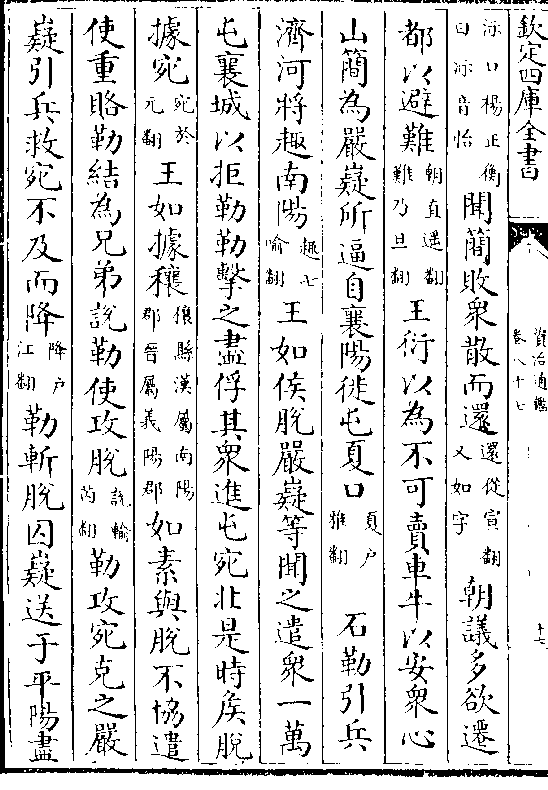 欽定四庫全書
資治通鑑
卷八十七
十七
沶口楊正衡曰沶音怡聞簡敗衆散而還還從宣翻又如字朝議多欲遷
都以避難朝直遥翻難乃旦翻王衍以為不可賣車牛以安衆心
山簡為嚴嶷所逼自襄陽徙屯夏口夏戶雅翻石勒引兵
濟河將趣南陽趣七喻翻王如侯脫嚴嶷等聞之遣衆一萬
屯襄城以拒勒勒擊之盡俘其衆進屯宛北是時侯脫
據宛宛於元翻王如據穰穰縣漢屬南陽郡晉屬義陽郡如素與脫不協遣
使重賂勒結為兄弟說勒使攻脫說輸芮翻勒攻宛克之嚴
嶷引兵救宛不及而降降戶江翻勒斬脫囚嶷送于平陽盡